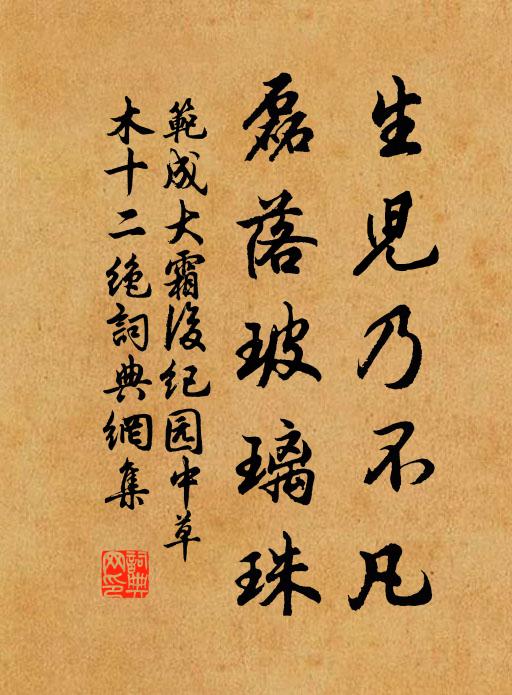 生児乃不凡
磊落玻璃珠
範成大霜後纪园中草
木十二绝詞典網集
詞典网印